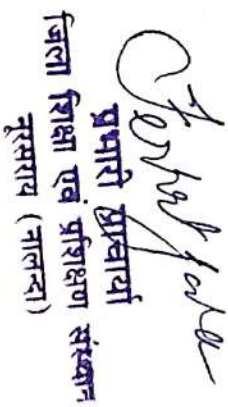 प्रभारी प्राचार्या
जिला शिक्षा एवं प्रशिक्षण संस्थान
नूरसराय (नालन्दा)